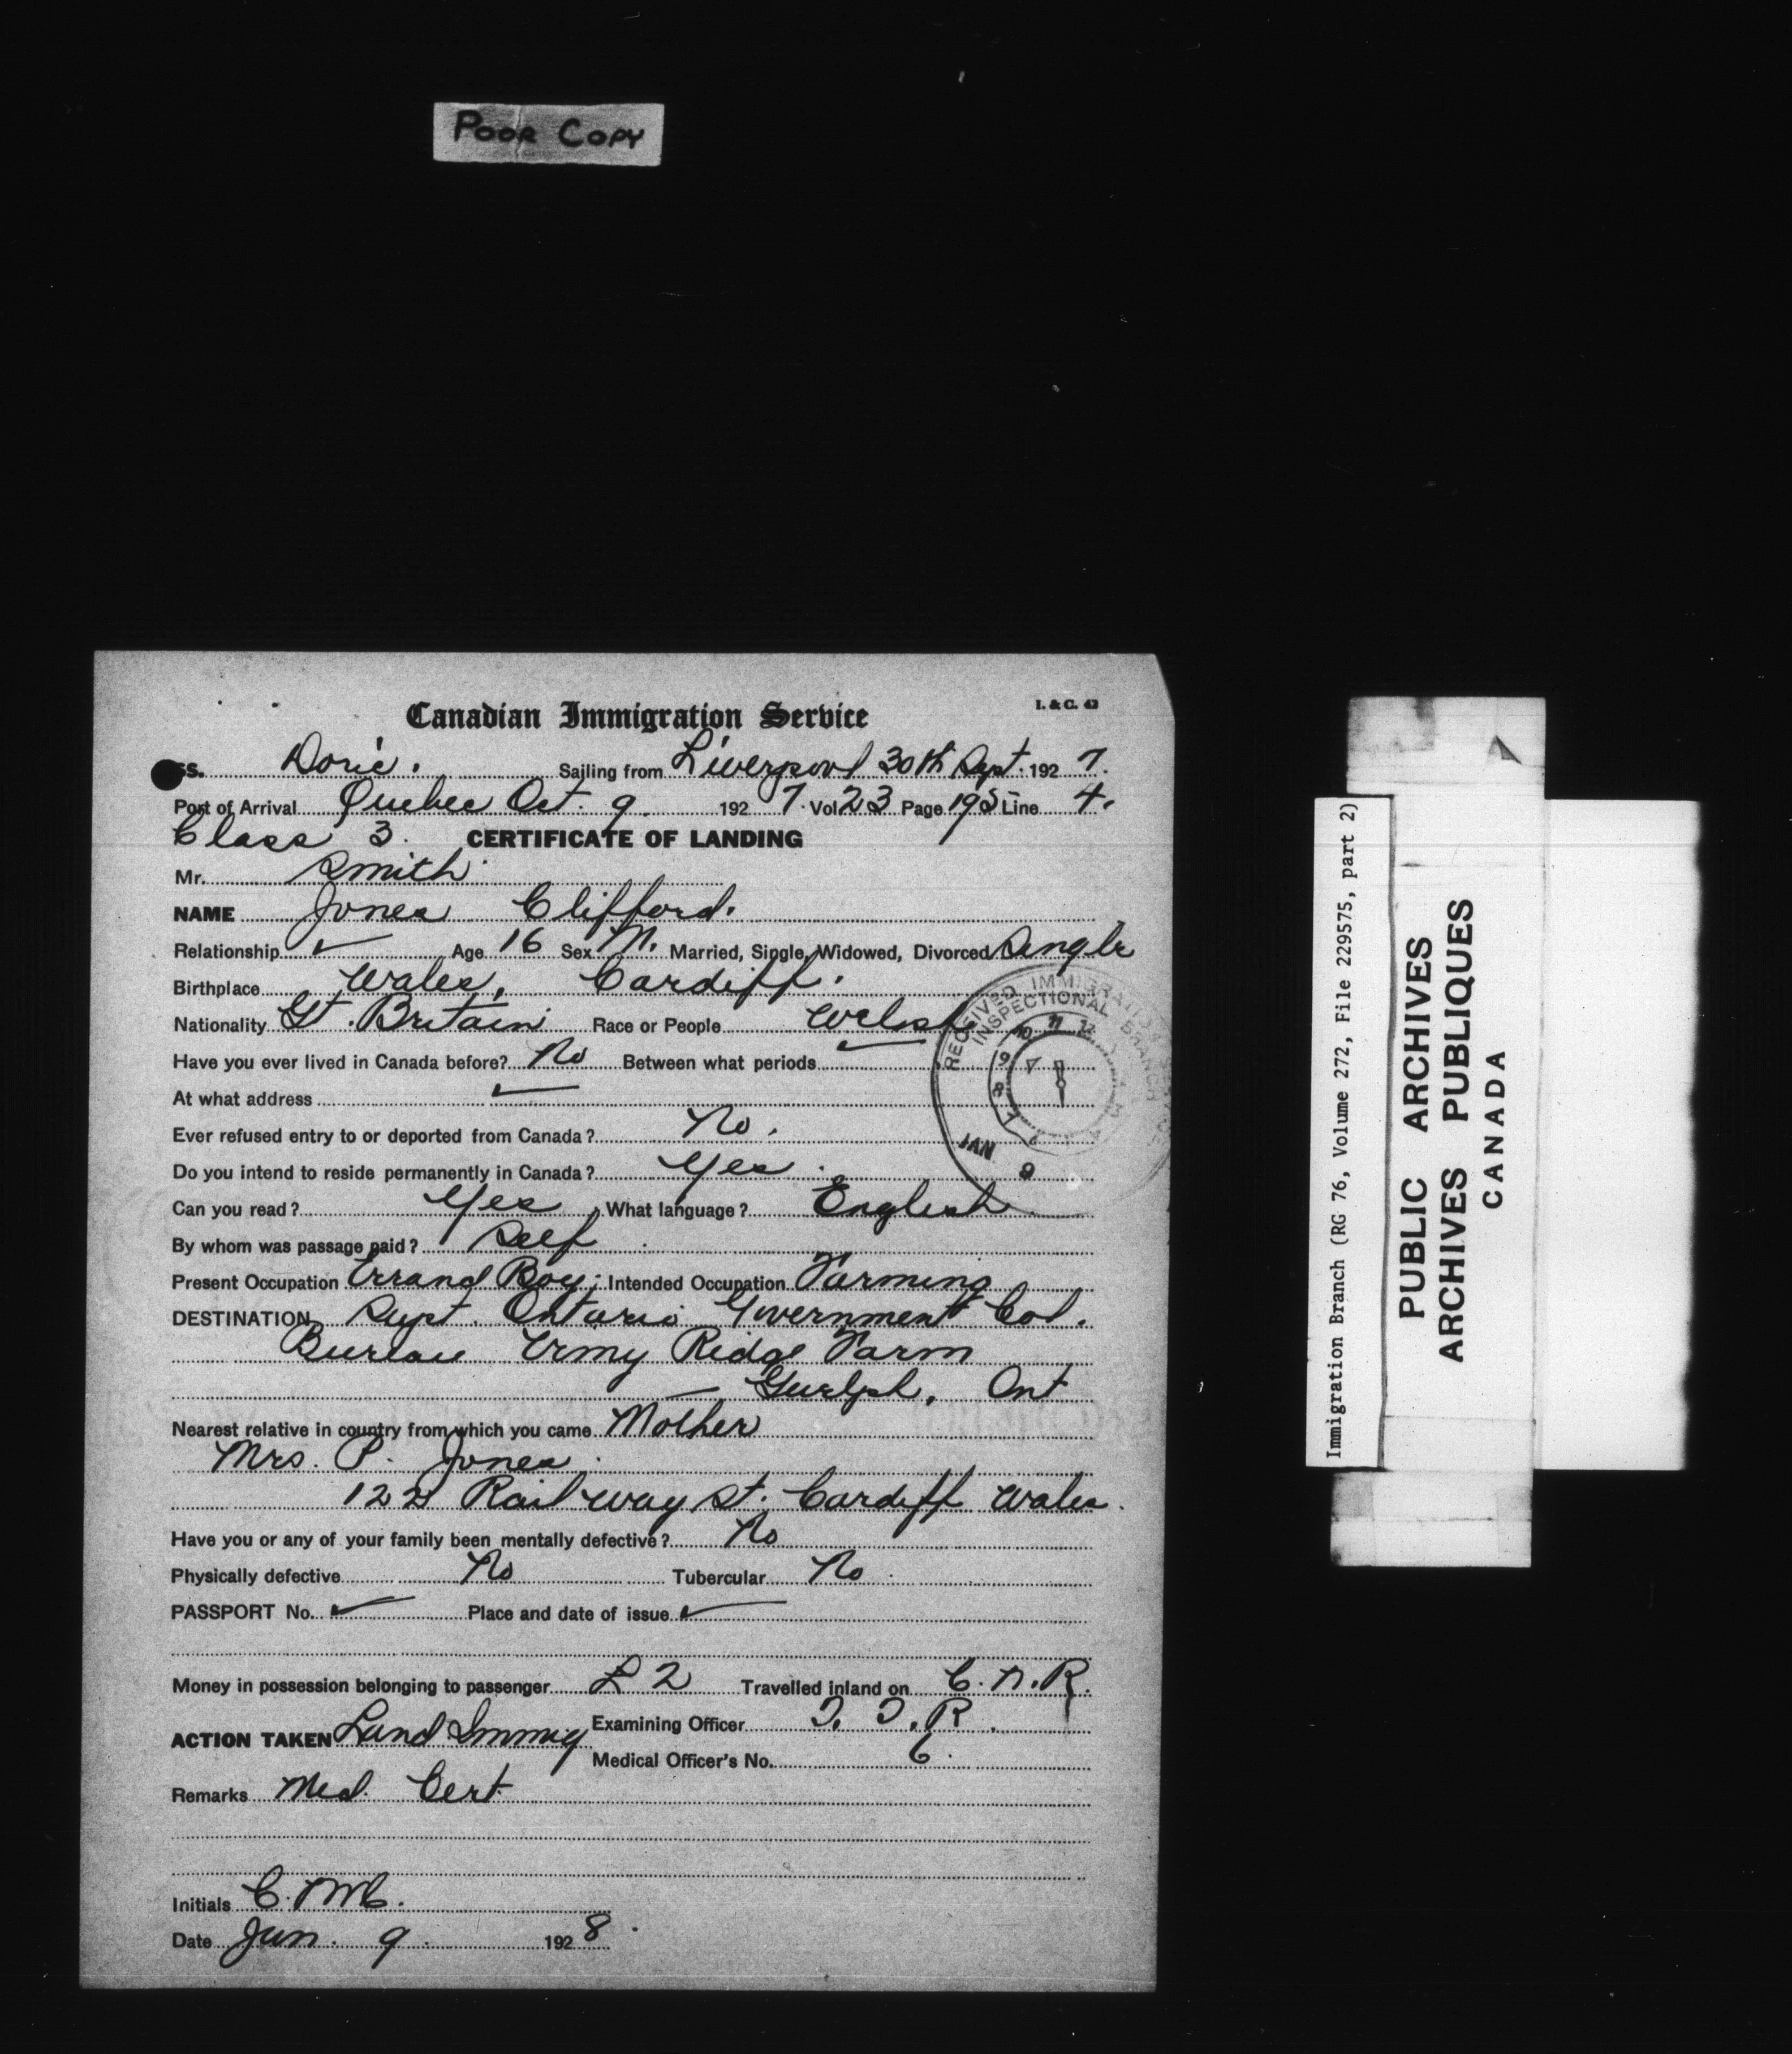 POOR COPY
Canadian Immigration Service
I. & C. 43
SS. Doric. Sailing from Liverpool 30th Sept. 1927.
Port of Arrival Quebec Oct. 9. 1927. Vol 23 Page 195 Line 4.
Class 3. CERTIFICATE OF LANDING
Mr. Smith
NAME Jones Clifford.
Relationship ✓ Age 16 Sex M. Married, Single, Widowed, Divorced Single
Birthplace Wales, Cardiff.
Nationality Gt. Britain Race or People Welsh
Have you ever lived in Canada before? No Between what periods ✓
At what address ✓
Ever refused entry to or deported from Canada? No.
Do you intend to reside permanently in Canada? Yes.
Can you read? Yes, What language? English
By whom was passage paid? Self
Present Occupation Errand Boy; Intended Occupation Farming
DESTINATION Supt. Ontario Government Col.
Bureau Vimy Ridge Farm
— Guelph, Ont
Nearest relative in country from which you came Mother
Mrs. P. Jones.
122 Railway St. Cardiff Wales.
Have you or any of your family been mentally defective? No
Physically defective No Tubercular No.
PASSPORT No. ✓ Place and date of issue ✓
Money in possession belonging to passenger £2 Travelled inland on C.N.R.
ACTION TAKEN Land Immig Examining Officer J. J. R.
Medical Officer's No. 6.
Remarks Med. Cert.
Initials
Date Jan. 9. 1928.
RECEIVED IMMIGRATION
INSPECTIONAL BRANCH
10 11 12
9
8
7
JAN 9
Immigration Branch (RG 76, Volume 272, File 229575, part 2)
PUBLIC ARCHIVES
ARCHIVES PUBLIQUES
CANADA